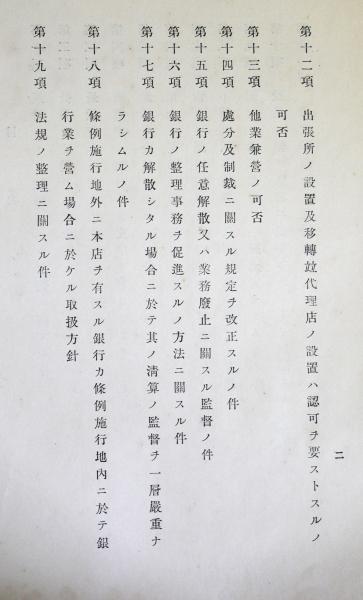 二
第十二項　出張所ノ設置及移轉竝代理店ノ設置ハ認可ヲ要ストスルノ
可否
第十三項　他業兼營ノ可否
第十四項　處分及制裁ニ關スル規定ヲ改正スルノ件
第十五項　銀行ノ任意解散又ハ業務廢止ニ關スル監督ノ件
第十六項　銀行ノ整理事務ヲ促進スルノ方法ニ關スル件
第十七項　銀行カ解散シタル場合ニ於テ其ノ清算ノ監督ヲ一層嚴重ナ
ラシムルノ件
第十八項　條例施行地外ニ本店ヲ有スル銀行カ條例施行地內ニ於テ銀
行業ヲ營ム場合ニ於ケル取扱方針
第十九項　法規ノ整理ニ關スル件